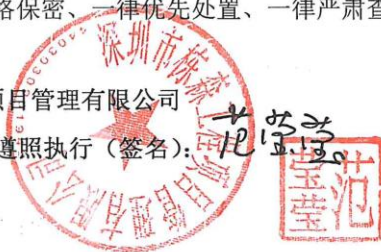 格保密、一律优先处置、一律严肃查
项目管理有限公司
遵照执行（签名）：范莹莹
深圳市栋森工程项目管理有限公司
范莹莹